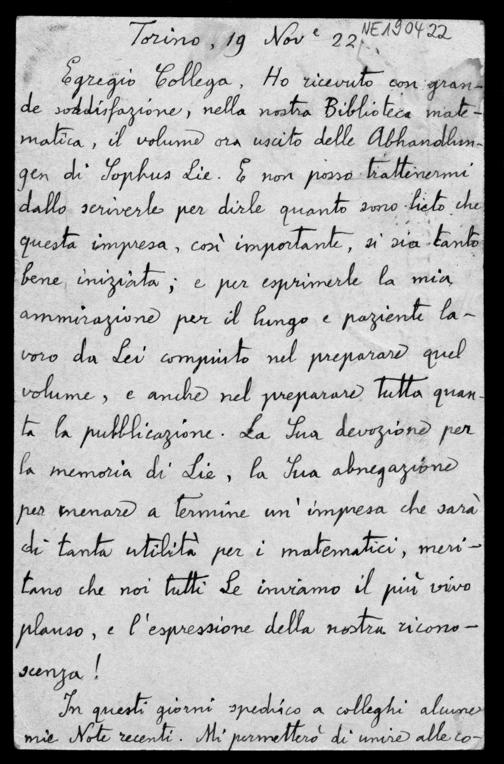 Torino, 19 Nov.e 22
NE190422
Egregio Collega, Ho ricevuto con gran-
de soddisfazione, nella nostra Biblioteca mate-
matica, il volume ora uscito delle Abhandlun-
gen di Sophus Lie. E non posso trattenermi
dallo scriverle per dirle quanto sono lieto che
questa impresa, così importante, si sia tanto
bene iniziata; e per esprimerle la mia
ammirazione per il lungo e paziente la-
voro da Lei compiuto nel preparare quel
volume, e anche nel preparare tutta quan-
ta la pubblicazione. La Sua devozione per
la memoria di Lie, la Sua abnegazione
per menare a termine un'impresa che sarà
di tanta utilità per i matematici, meri-
tano che noi tutti Le inviamo il più vivo
plauso, e l'espressione della nostra ricono-
scenza!
In questi giorni spedisco a colleghi alcune
mie Note recenti. Mi permetterò di unire alle co-